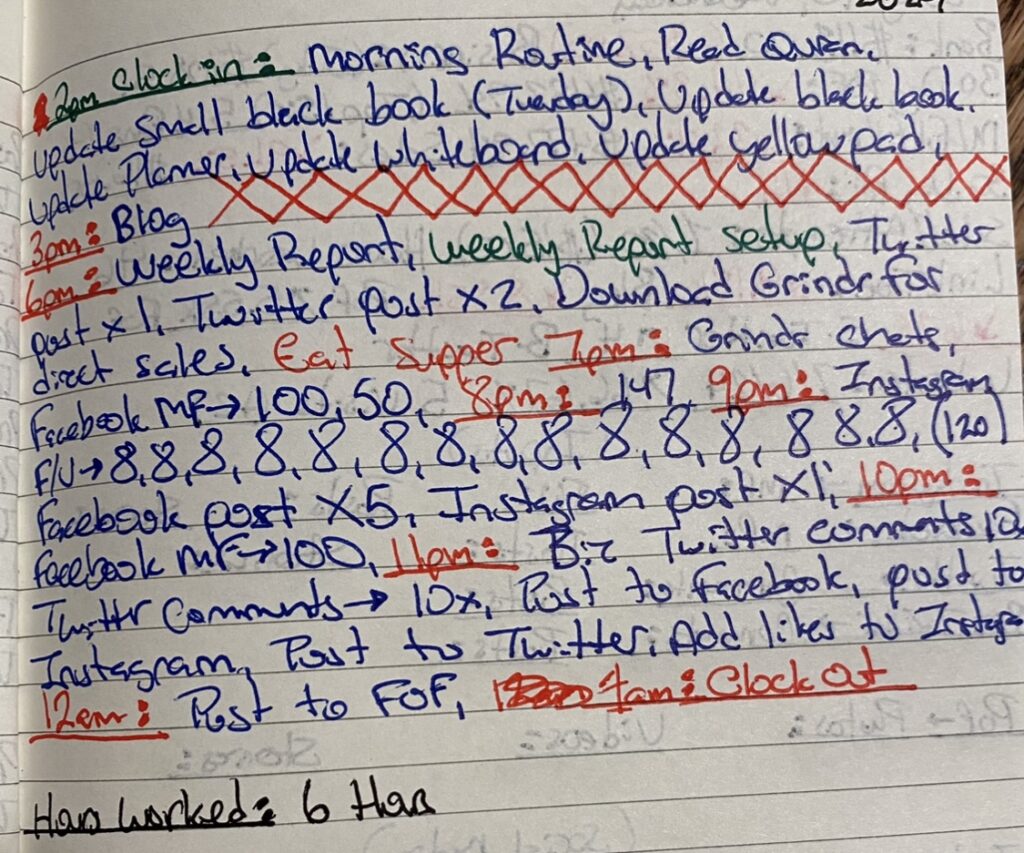 2024
2pm Clock in: Morning Routine, Read Quran,
Update Small black book (Tuesday), Update black book.
Update Planner, Update Whiteboard, Update yellow pad,
3pm: Blog
6pm: Weekly Report, Weekly Report setup, Twitter
post x 1, Twitter post x 2, Download Grindr for
direct sales, Eat Supper 7pm: Grindr chats,
Facebook MF→ 100, 50, 8pm: 147, 9pm: Instagram
F/U→ 8, 8, 8, 8, 8, 8, 8, 8, 8, 8, 8, 8, 8 8, 8, (120)
Facebook post X5, Instagram post X1, 10pm:
Facebook MF→100, 11pm: Biz Twitter comments 10x
Twitter Comments→ 10x, Post to Facebook, post to
Instagram, Post to Twitter, Add likes to Instagram
12am: Post to FOF, 1am: Clock Out
Hours Worked: 6 Hours